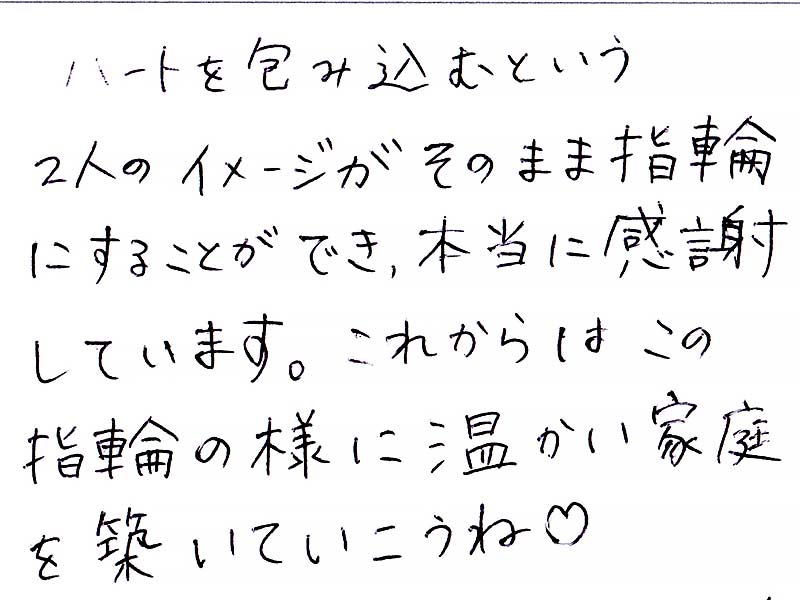 ハートを包み込むという
2人のイメージがそのまま指輪
にすることができ,本当に感謝
しています。これからはこの
指輪の様に温かい家庭
を築いていこうね♡